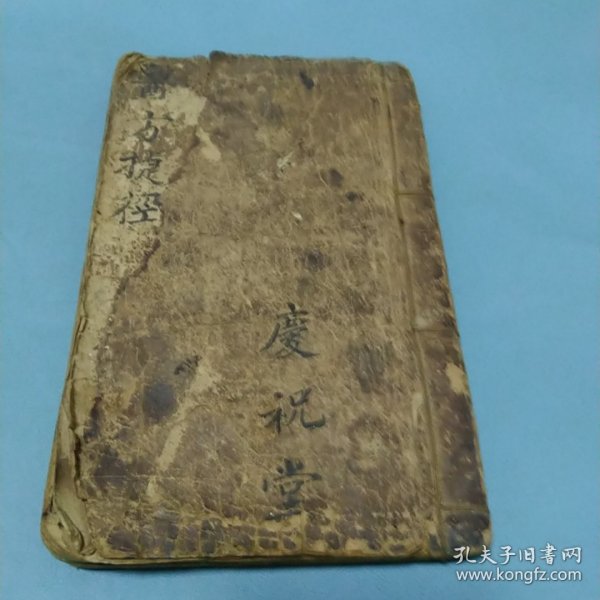 方捷徑
慶祝堂
孔夫子旧書网
www.kongfz.com